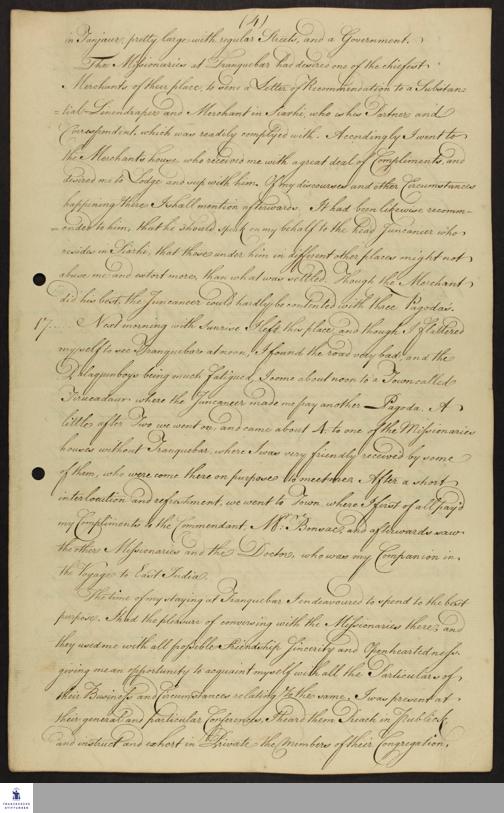 (4)
in Tanjaur, pretty large with regular Streets, and a Government.
The Missionaries at Tranquebar had desired one of the chiefest
Merchants of their place, to send a Letter of Recommendation to a Substan=
=tial Linendraper and Merchant in Siarhi, who is his Partner and
Correspondent, which was readily complyed with. Accordingly I went to
the Merchants house who received me with a great deal of Compliments, and
desired me to Lodge and sup with him. Of my discourses and other Circumstances
happening there I shall mention afterwards. It had been likewise recomm=
=ended to him, that he should speak on my behalf to the head Juncaneer who
resides in Siarhi, that those under him in different other places might not
abuse me and extort more, than what was settled. Though the Merchant
did his best, the Juncaneer could hardly be contented with three Pagoda's.
17. Next morning with Sunrise I left this place, and though I flattered
myself to see Tranquebar at noon, I found the road very bad, and the
Palagunboys being much fatigued, I come about noon to a Town called
Tirucadaur where the Juncaneer made me pay another Pagoda. A
little after Two we went on, and came about 4 to one of the Missionaries
houses without Tranquebar, where I was very friendly received by some
of them, who were come there on purpose to meet me. After a short
interlocution and refreshment, we went to Town, where I first of all pay'd
my Compliments to the Commendant Mr. Bonsac, and afterwards saw
the other Missionaries and the Doctor, who was my Companion in
the Voyage to East India.
The time of my staying at Tranquebar I endeavoured to spend to the best
purpose. I had the pleasure of conversing with the Missionaries there, and
they used me with all possible Friendship Sincerity and Openheartedness
giving me an opportunity to acquaint myself with all the Particulars of
their Business and Circumstances relating to the same. I was present at
their general and particular Conferences, I heard them Preach in Publick
and instruct and exhort in Private the Members of their Congregation.
FRANCKESCHE
STIFTUNGEN